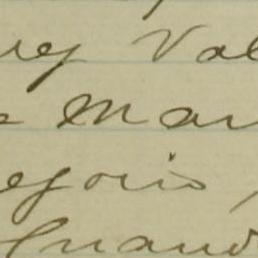 rey Val
e Mar
egorio,
Gnand